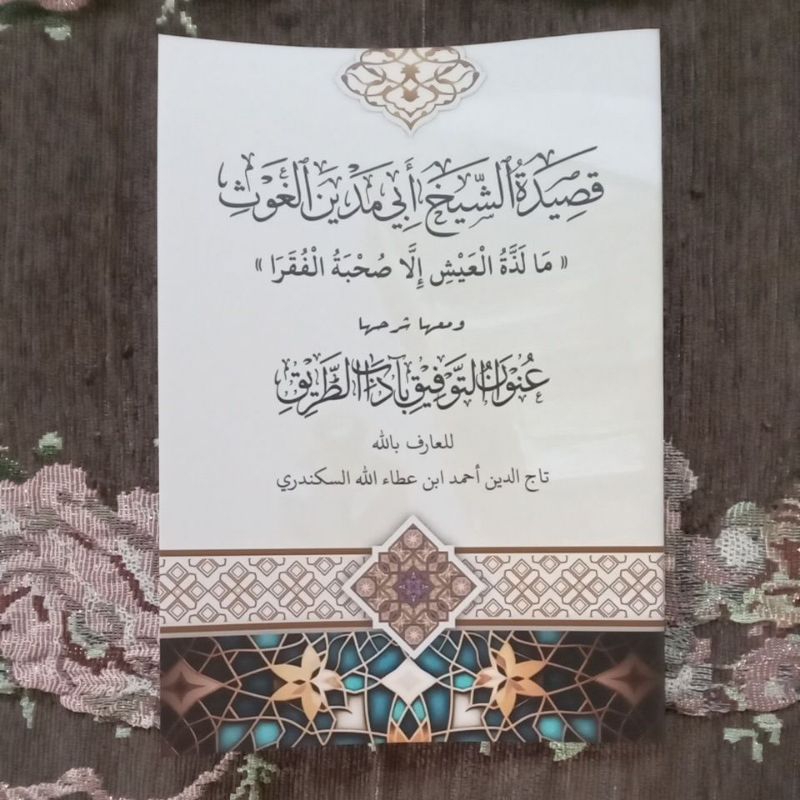 قَصِيدَةُ الشَّيْخِ أَبِي مَدْيَنَ الْغَوْثِ
« مَا لَذَّةُ الْعَيْشِ إِلَّا صُحْبَةُ الْفُقَرَا »
ومعها شرحها
عُنْوَانُ التَّوْفِيقِ بِآدَابِ الطَّرِيقِ
للعارف بالله
تاج الدين أحمد ابن عطاء الله السكندري